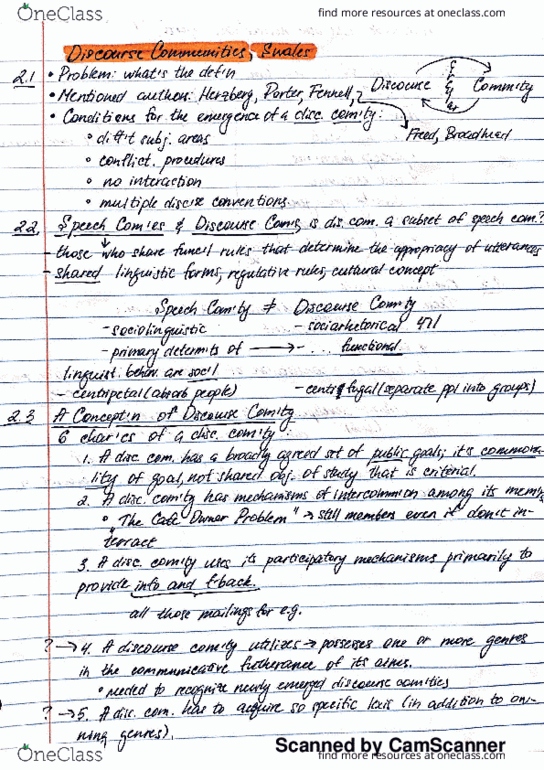 OneClass
find more resources at oneclass.com
Discourse Communities, Swales
2.1 • Problem: what's the defin
• Mentioned author: Herzberg, Porter, Fennell,
Discourse Commity
Freed, Broadhead
• Conditions for the emergence of a disc. comity:
• diff't subj. areas
• conflict. procedures
• no interaction
• multiple discrse conventions
2.2 Speech Comies & Discourse Coms, is dis. com. a subset of speech com.?
- those who share funcil rules that determine the appropriacy of utterances
- shared linguistic forms, regulative rules, cultural concept
Speech Comity ≠ Discourse Comity
- sociolinguistic - sociorhetorical 471
- primary determits of → - ... functional
linguist. behav. are soc'l
- centripetal (absorb people) - centrifugal (separate ppl into groups)
2.3 A Concept'n of Discourse Comity
6 char'ics of a disc. comity:
1. A disc. com. has a broadly agreed set of public goals; it's commona-
lity of goal, not shared obj. of study that is criterial.
2. A disc. comity has mechanisms of intercommion among its memb
• "The Cafe Owner Problem" → still members even if don't in-
terract
3. A disc. comity uses its participatory mechanisms primarily to
provide info and f-back.
all those mailings for e.g.
? → 4. A discourse comity utilizes → possesses one or more genres
in the communicative furtherance of its aims.
• needed to recognize newly emerged discourse comities
? → 5. A disc. com. has to acquire so specific lexis (in addition to ow-
ning genres).
OneClass
Scanned by CamScanner
find more resources at oneclass.com